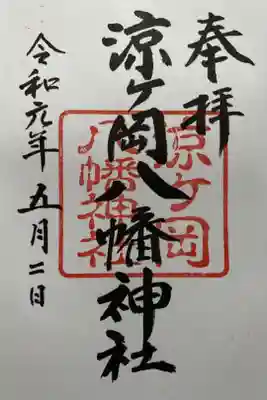 奉拝
涼ヶ岡八幡神社
涼ケ岡
八幡神社
令和元年五月二日